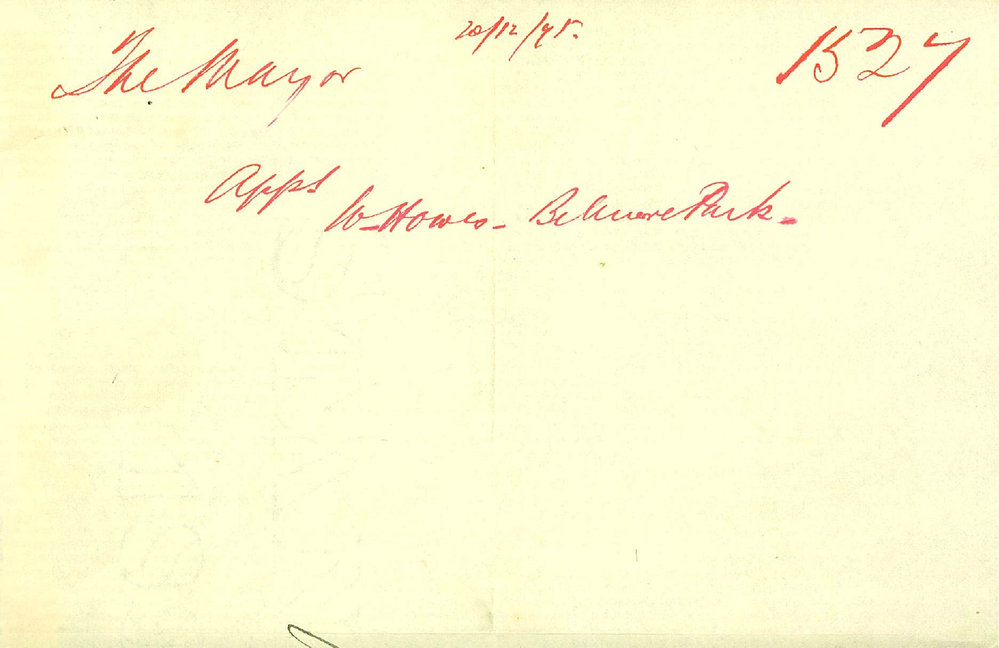 The Mayor
20/12/95.
1527
Appt
W Howes - Belmore Park -